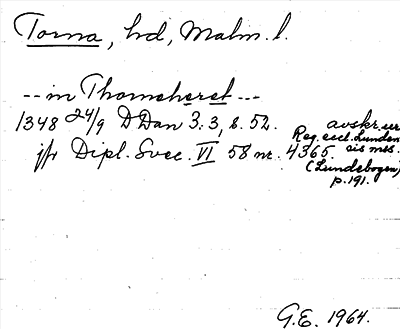 Torna, hd, Malm. l.
-- in Thorneheret ---
1348 24/9 D Dan 3:3, s. 52. avskr. ur
Reg. eccl. Lunden
jfr Dipl. Svec. VI 58 nr. 4365. sis mes.
(Lundebogen)
p. 191.
G.E. 1964.